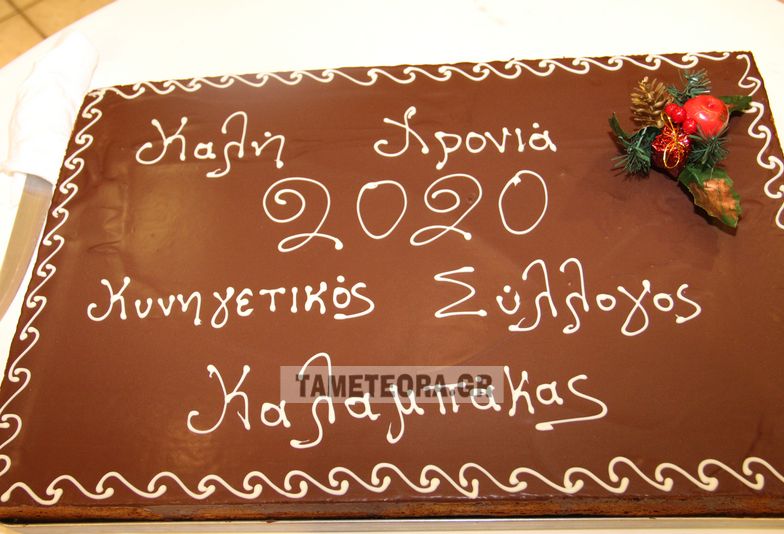 Καλή Χρονιά
2020
Κυνηγετικός Σύλλογος
Καλαμπάκας
TAMETEORA.GR